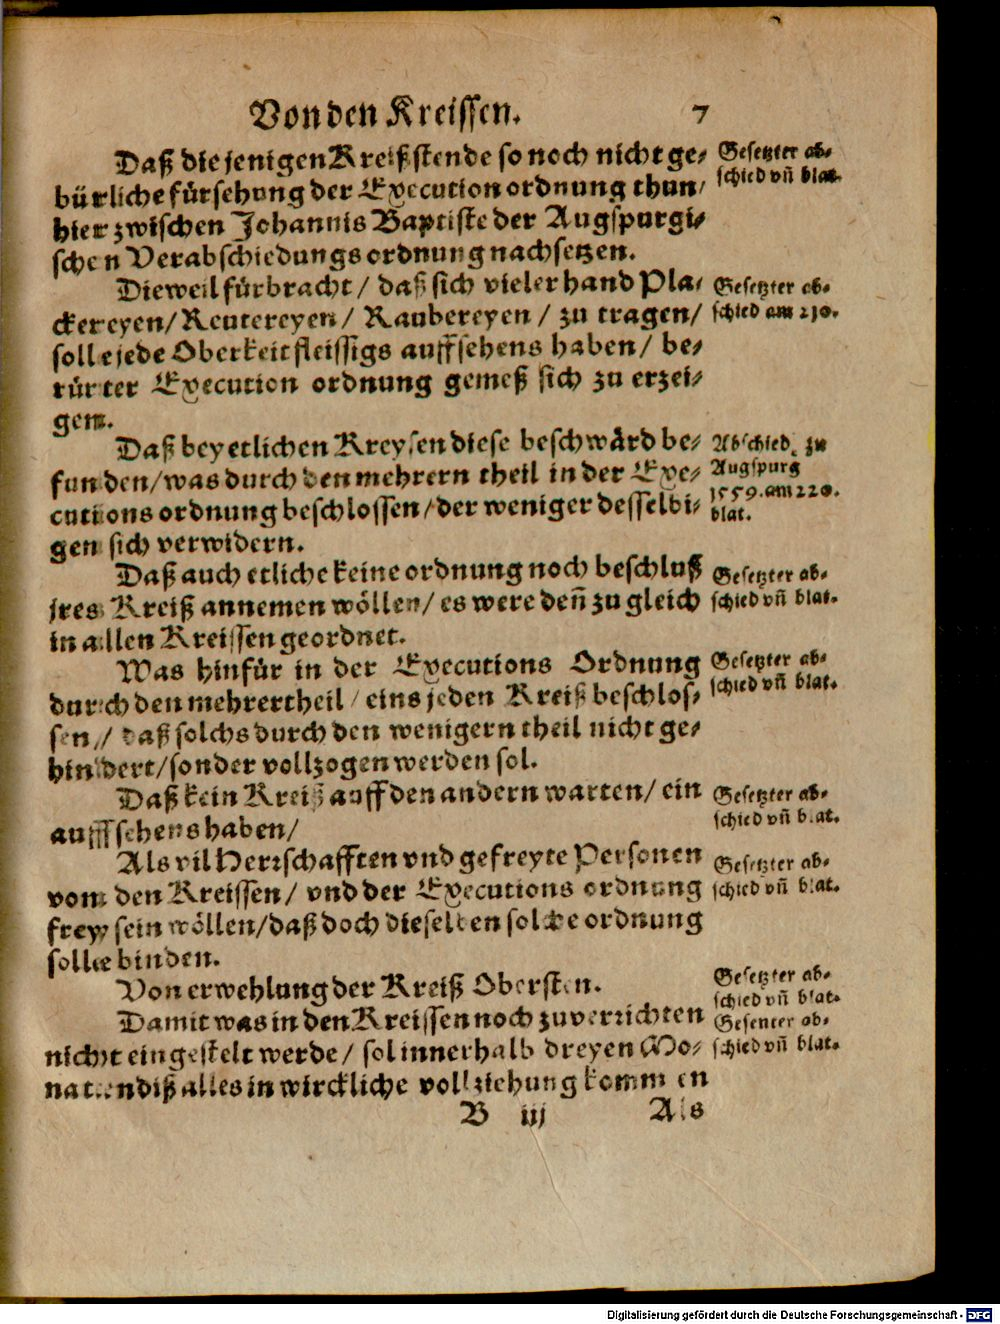 Von den Kreissen. 7
Daß die jenigen Kreißstende so noch nicht ge⸗
bürliche fürsehung der Execution ordnung thun/
hier zwischen Johannis Baptiste der Augspurgi⸗
schen Verabschiedungs ordnung nachsetzen.
Gesetzter ab⸗
schied vñ blat.
Dieweil fürbracht / daß sich vielerhand Pla⸗
ckereyen / Reutereyen / Raubereyen / zu tragen /
solle jede Oberkeit fleissigs auffsehens haben / be⸗
rürter Execution ordnung gemeß sich zu erzei⸗
gen.
Gesetzter ab⸗
schied am 230.
Daß bey etlichen Kreysen diese beschwård be⸗
funden / was durch den mehrern theil in der Exe⸗
cutions ordnung beschlossen / der weniger desselbi⸗
gen sich verwidern.
Abschied zu
Augspurg
1559. am 220.
blat.
Daß auch etliche keine ordnung noch beschluß
jres Kreiß annemen wöllen / es were deñ zu gleich
in allen Kreissen geordnet.
Gesetzter ab⸗
schied vñ blat.
Was hinfür in der Executions Ordnung
durch den mehrertheil / eins jeden Kreiß beschlos⸗
sen / daß solchs durch den wenigern theil nicht ge⸗
hindert / sonder vollzogen werden sol.
Gesetzter ab⸗
schied vñ blat.
Daß kein Kreiß auff den andern warten / ein
auffsehens haben /
Gesetzter ab⸗
schied vñ blat.
Als vil Herrschafften vnd gefreyte Personen
von den Kreissen / vnd der Executions ordnung
frey sein wöllen / daß doch dieselben solche ordnung
solle binden.
Gesetzter ab⸗
schied vñ blat.
Von erwehlung der Kreiß Obersten.
Gesetzter ab⸗
schied vñ blat.
Damit was in den Kreissen noch zuverrichten
nicht eingestelt werde / sol innerhalb dreyen Mo⸗
naten diß alles in wirckliche vollziehung kommen
Gesetzter ab⸗
schied vñ blat.
B iij Als
Digitalisierung gefördert durch die Deutsche Forschungsgemeinschaft - DFG